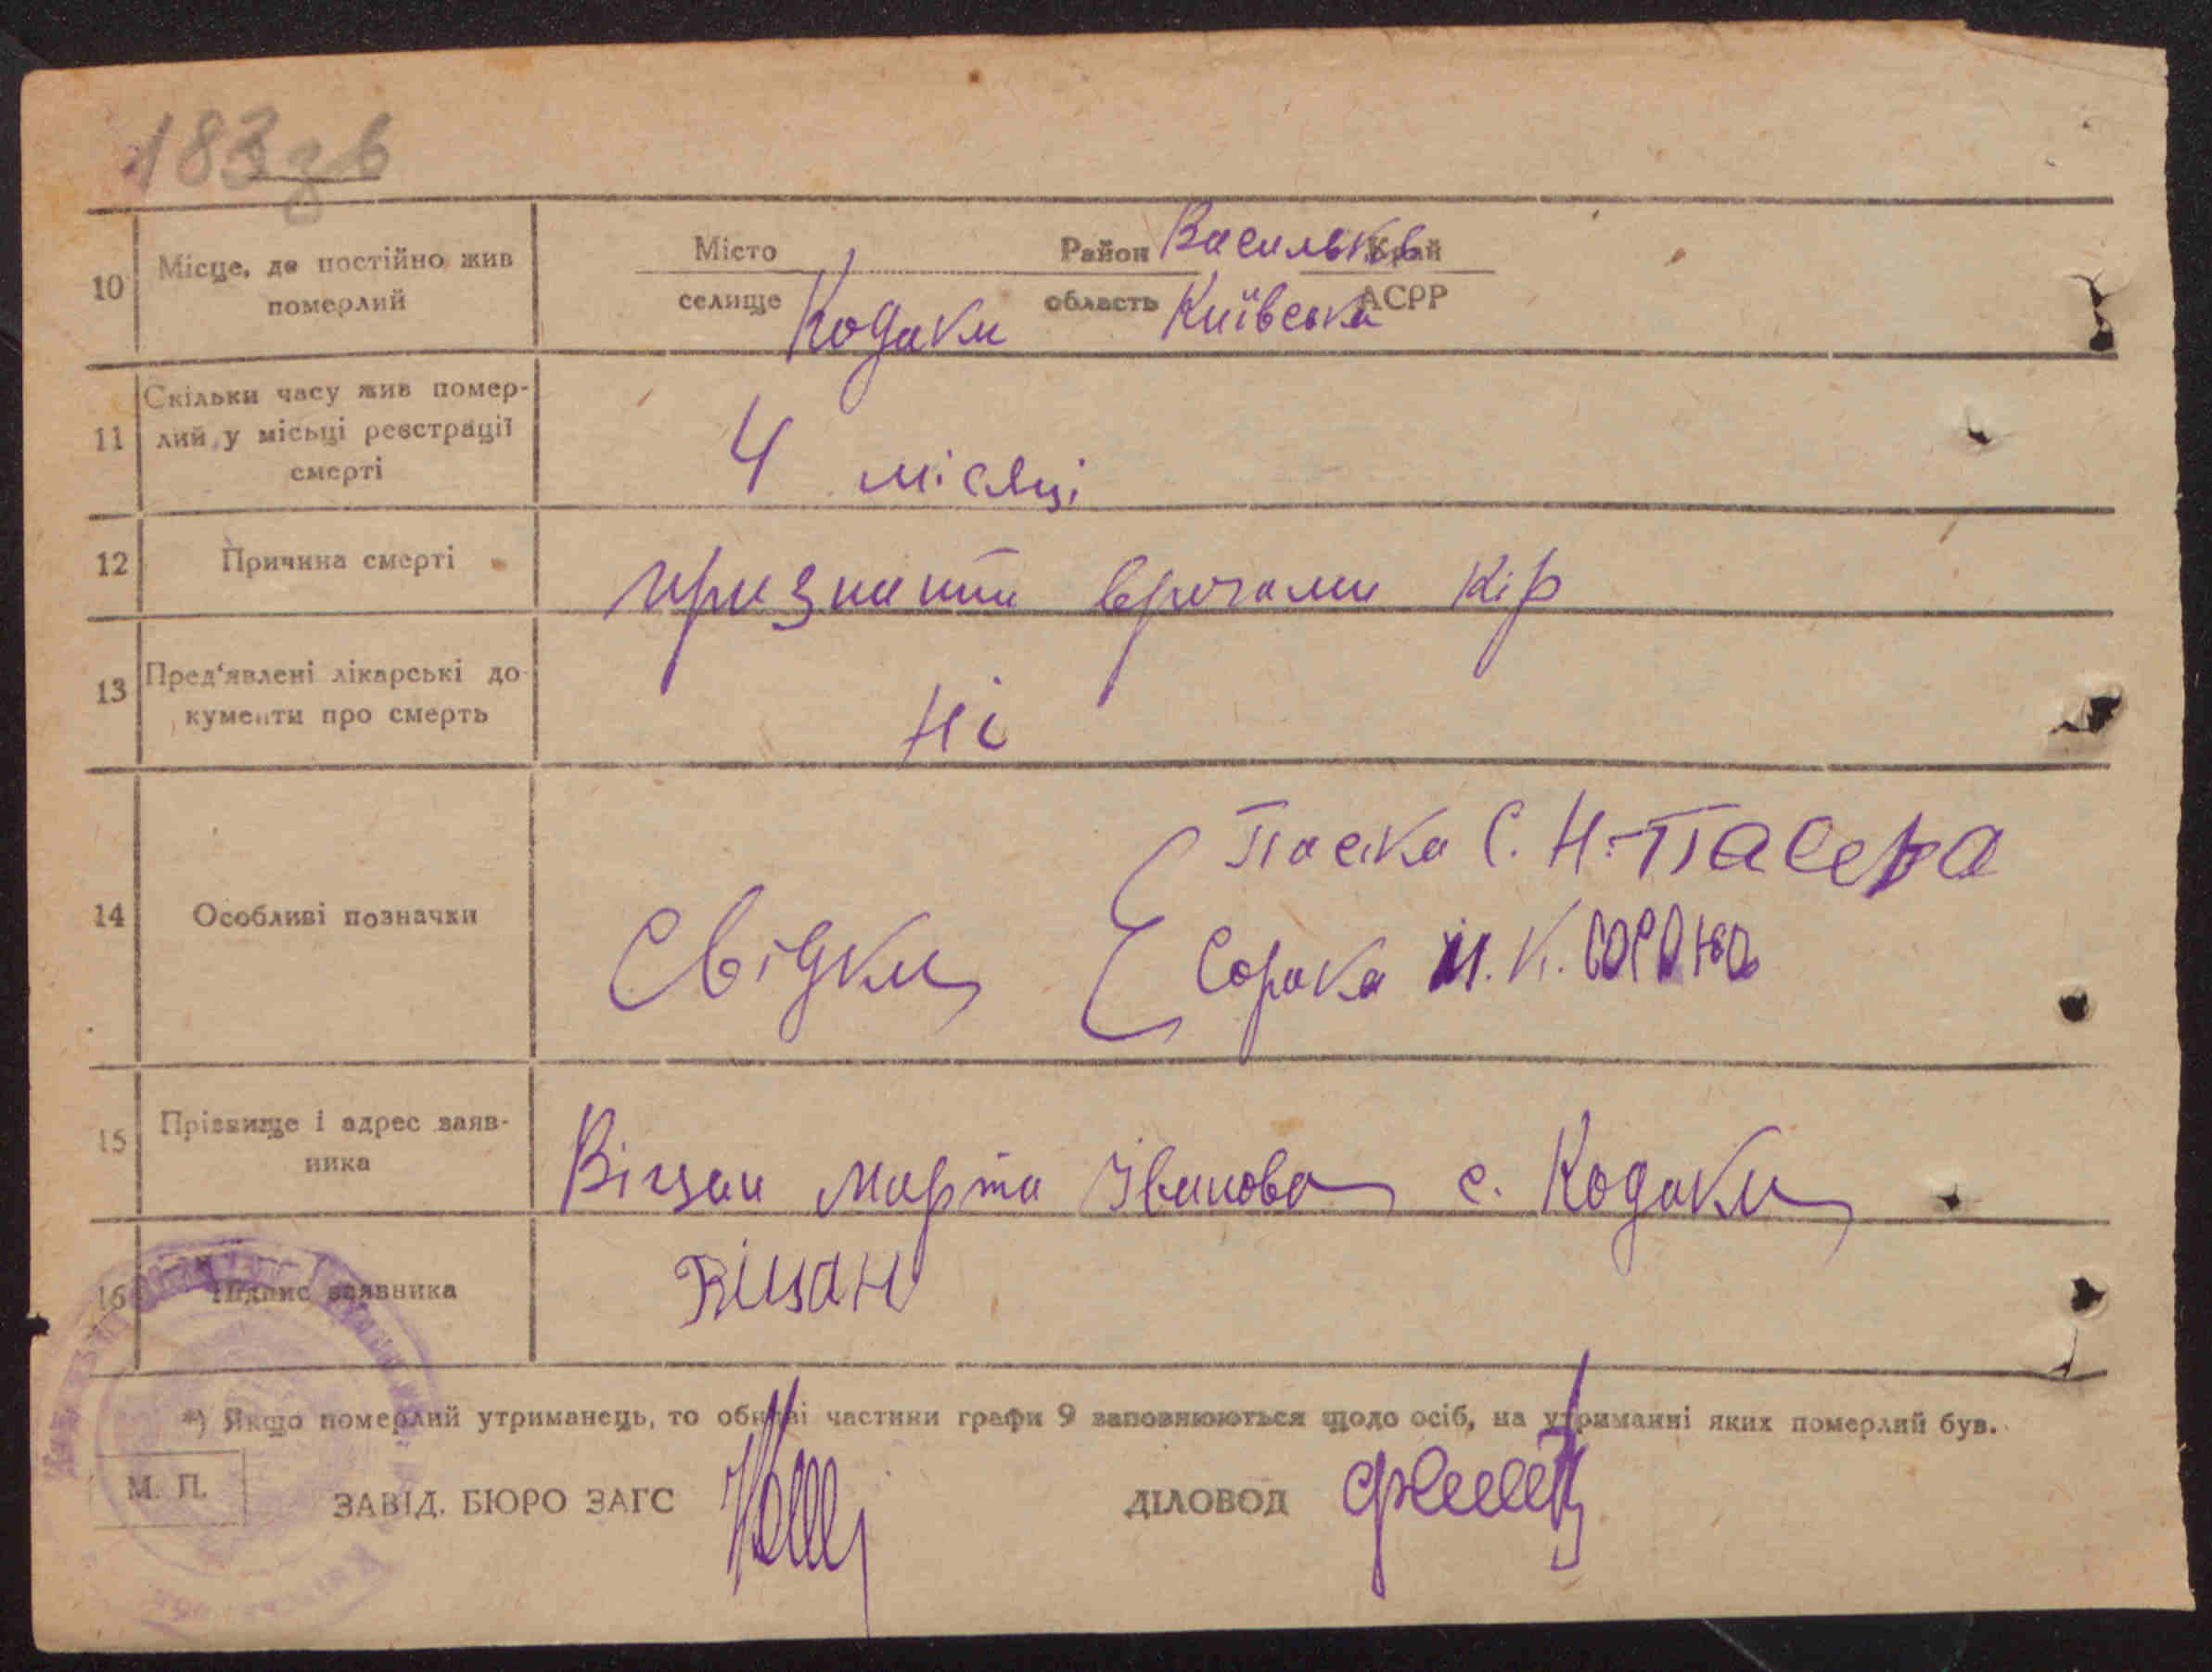 183 зв
10 Місце, де постійно жив померлий
Місто
селище Кодаки
Район Васильків
область Київська
Край
АСРР
11 Скільки часу жив помер-
лий у місьці реєстрації
смерті
4 місяці
12 Причина смерті
признати врочами кір
13 Пред'явлені лікарські до-
кументи про смерть
Ні
14 Особливі позначки
Свідки
Пасіка С. Н.
Сорока М. К. Сорока
15 Прізвище і адрес заяв-
ника
Віцан Марта Іванова с. Кодаки
16 Підпис заявника
Віцан
*) Якщо померлий утриманець, то обидві частини графи 9 заповнюються щодо осіб, на утриманні яких померлий був.
М. П.
ЗАВІД. БЮРО ЗАГС
ДІЛОВОД